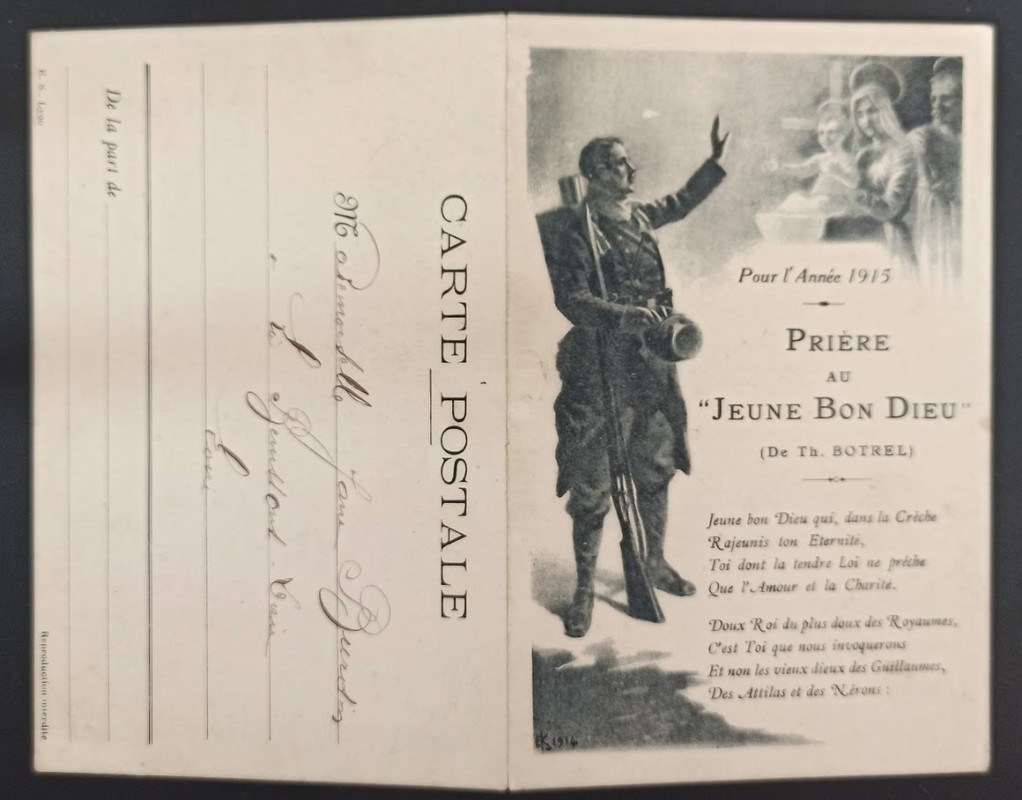 CARTE POSTALE
Mademoiselle Jane
à
Loire
De la part de
E. S. Lyon
Reproduction interdite
Pour l'Année 1915
PRIÈRE
AU
"JEUNE BON DIEU"
(De Th. BOTREL)
Jeune bon Dieu qui, dans la Crèche
Rajeunis ton Eternité,
Toi dont la tendre Loi ne prêche
Que l'Amour et la Charité.
Doux Roi du plus doux des Royaumes,
C'est Toi que nous invoquerons
Et non les vieux dieux des Guillaumes,
Des Attilas et des Nérons :
1914